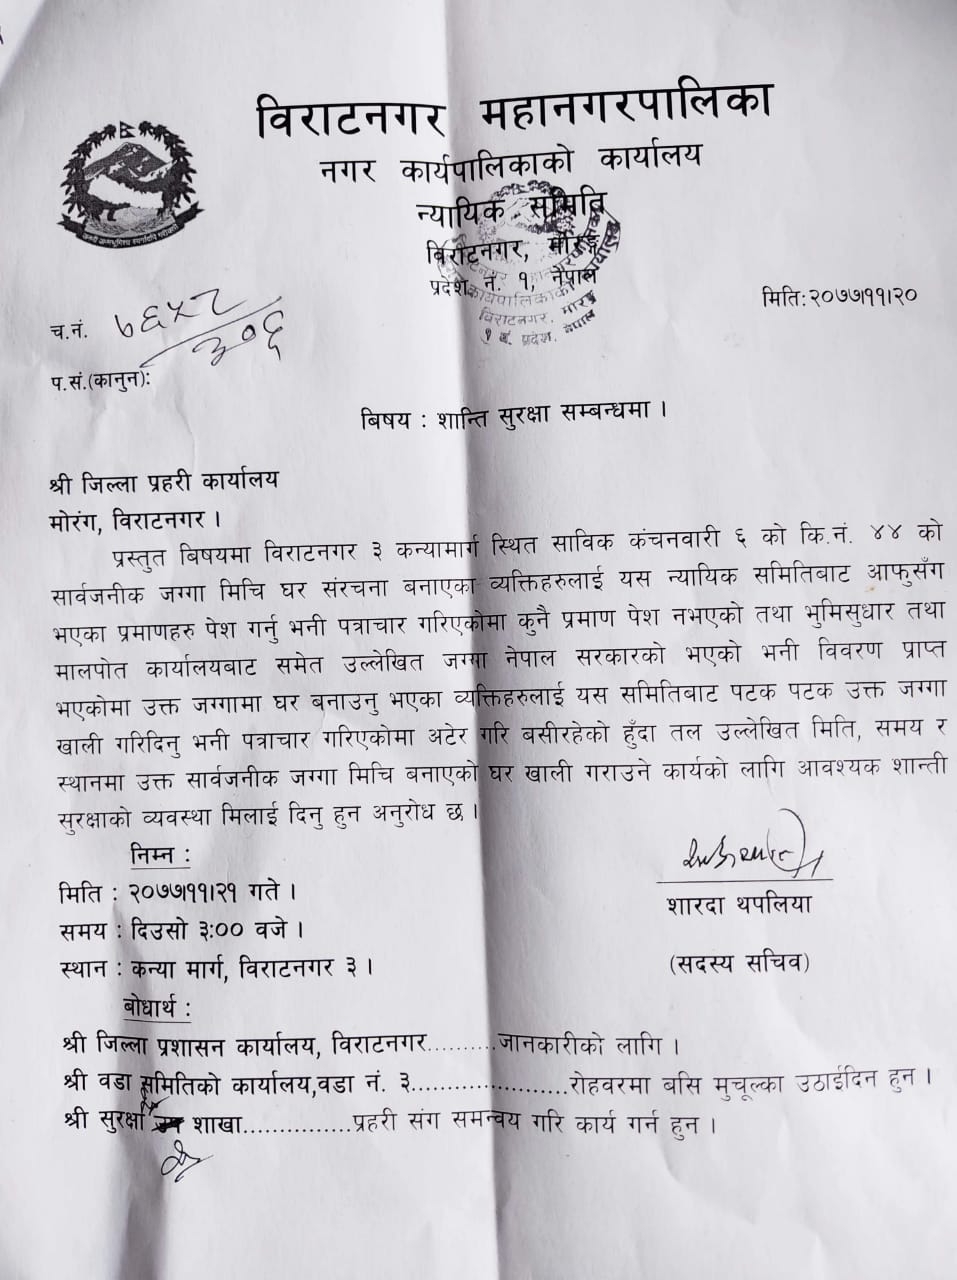 विराटनगर महानगरपालिका
नगर कार्यपालिकाको कार्यालय
न्यायिक समिति
विराटनगर, मोरङ्ग
प्रदेश नं. १, नेपाल
मिति:२०७७।११।२०
च.नं. ७६५८
३०६
प.सं.(कानुन):
बिषय : शान्ति सुरक्षा सम्बन्धमा ।
श्री जिल्ला प्रहरी कार्यालय
मोरंग, विराटनगर ।
प्रस्तुत बिषयमा विराटनगर ३ कन्यामार्ग स्थित साविक कंचनवारी ६ को कि.नं. ४४ को
सार्वजनीक जग्गा मिचि घर संरचना बनाएका व्यक्तिहरुलाई यस न्यायिक समितिबाट आफुसँग
भएका प्रमाणहरु पेश गर्नु भनी पत्राचार गरिएकोमा कुनै प्रमाण पेश नभएको तथा भुमिसुधार तथा
मालपोत कार्यालयबाट समेत उल्लेखित जग्गा नेपाल सरकारको भएको भनी विवरण प्राप्त
भएकोमा उक्त जग्गामा घर बनाउनु भएका व्यक्तिहरुलाई यस समितिबाट पटक पटक उक्त जग्गा
खाली गरिदिनु भनी पत्राचार गरिएकोमा अटेर गरि बसीरहेको हुँदा तल उल्लेखित मिति, समय र
स्थानमा उक्त सार्वजनीक जग्गा मिचि बनाएको घर खाली गराउने कार्यको लागि आवश्यक शान्ती
सुरक्षाको व्यवस्था मिलाई दिनु हुन अनुरोध छ ।
निम्न :
मिति : २०७७।११।२१ गते ।
समय : दिउसो ३:०० वजे ।
स्थान : कन्या मार्ग, विराटनगर ३ ।
शारदा थपलिया
(सदस्य सचिव)
बोधार्थ :
श्री जिल्ला प्रशासन कार्यालय, विराटनगर..........जानकारीको लागि ।
श्री वडा समितिको कार्यालय,वडा नं. ३.......................रोहवरमा बसि मुचूल्का उठाईदिन हुन ।
श्री सुरक्षा शाखा................प्रहरी संग समन्वय गरि कार्य गर्न हुन ।